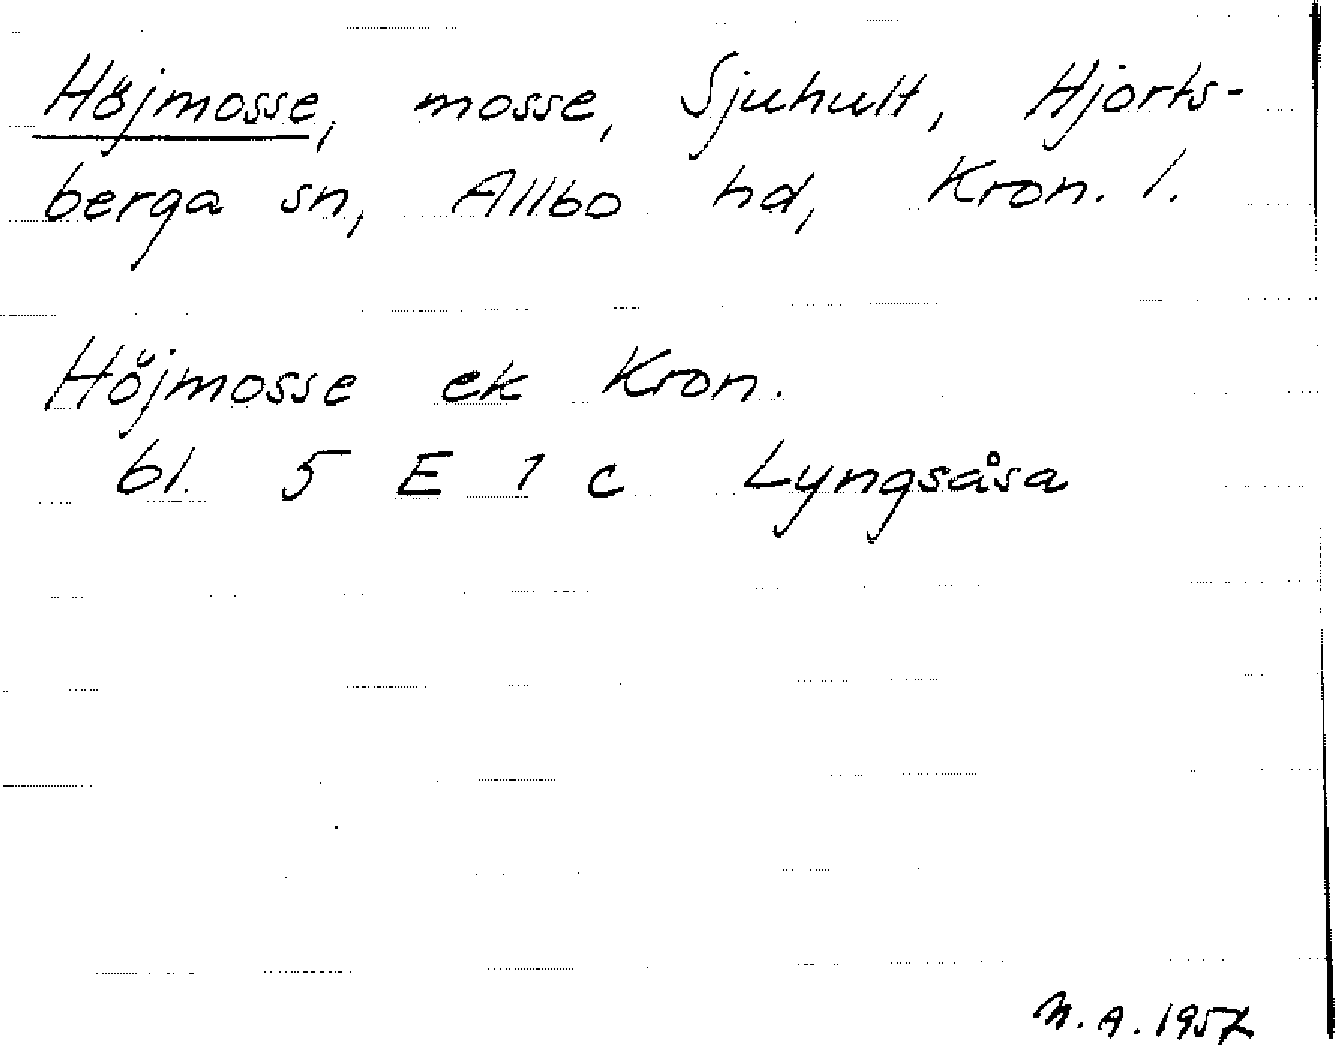 Höjmosse, mosse, Sjuhult, Hjorts-
berga sn, Allbo hd, Kron. l.
Höjmosse ek Kron.
bl. 5 E 1 c Lyngsåsa
N. A. 1957